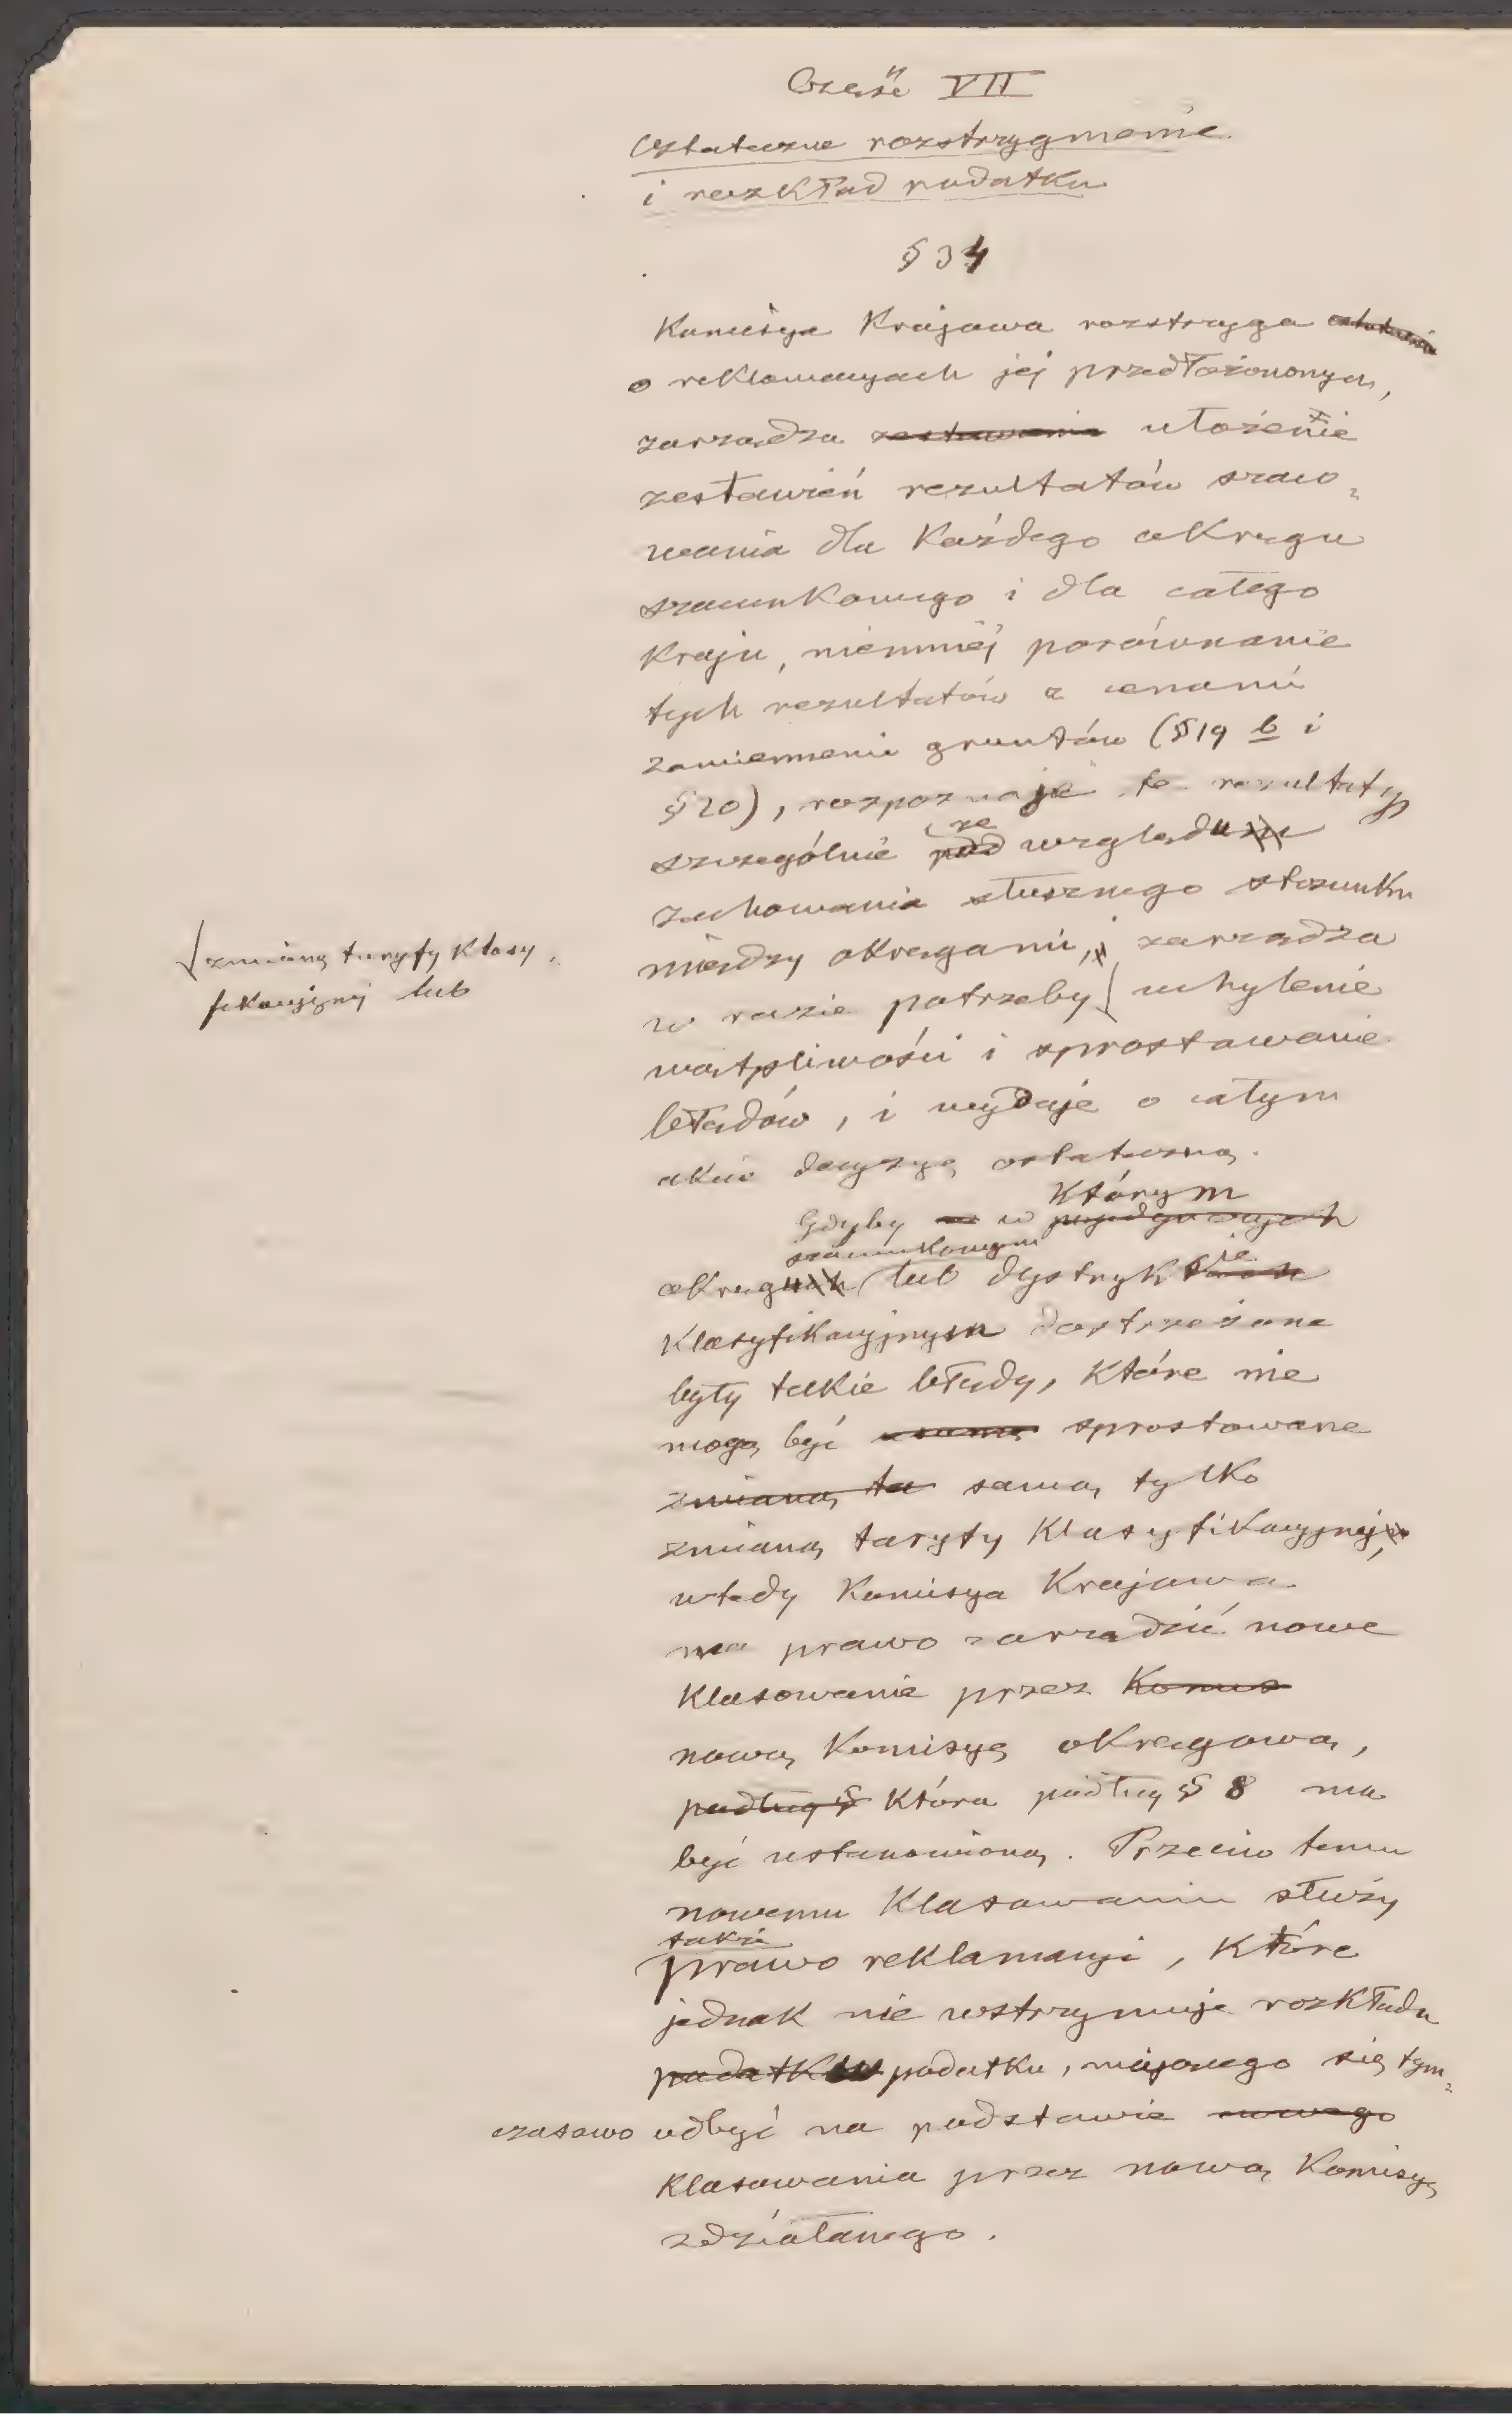 Część VII
Ostateczne rozstrzygnienie
i rozkład podatku
§ 34
Komisya Krajowa rozstrzyga ostatecznie
o reklamacyach jej przedłożononych,
zarządza zestawienia ułożenie
zestawień rezultatów szaco-
wania dla Każdego okręgu
szacunkowego i dla całego
Kraju, niemniej porównanie
tych rezultatów z cenami
zamiennemi gruntów (§ 19 b i
§ 20), rozpoznaje te rezultaty
ze
szczególnie pod względu
zachowania słusznego stosunku
między okręgami, i zarządza
zmianę taryfy Klasy-
fikacyjnej lub
w razie potrzeby uchylenie
wątpliwości i sprostowanie
błędów, i wydaje o całym
akcie decyzyę ostateczną.
którym
Gdyby w pojedynczych
szacunkowym
okręgu lub dystrykcie
Klasyfikacyjnym dostrzeżone
były takie błędy, Które nie
mogą być sprostowane
zmianą ta samą tylko
zmianą taryfy Klasyfikacyjnej,
wtedy Komisya Krajowa
ma prawo zarządzić nowe
Klasowanie przez Komis
nową Komisyę okręgową,
podług § Która podług § 8 ma
być ustanowioną. Przeciw temu
nowemu Klasowaniu służy
także
prawo reklamacyi, Które
jednak nie wstrzymuje rozkładu
podatków podatku, mającego się tym-
czasowo odbyć na podstawie nowego
Klasowania przez nową Komisyę
zdziałanego.